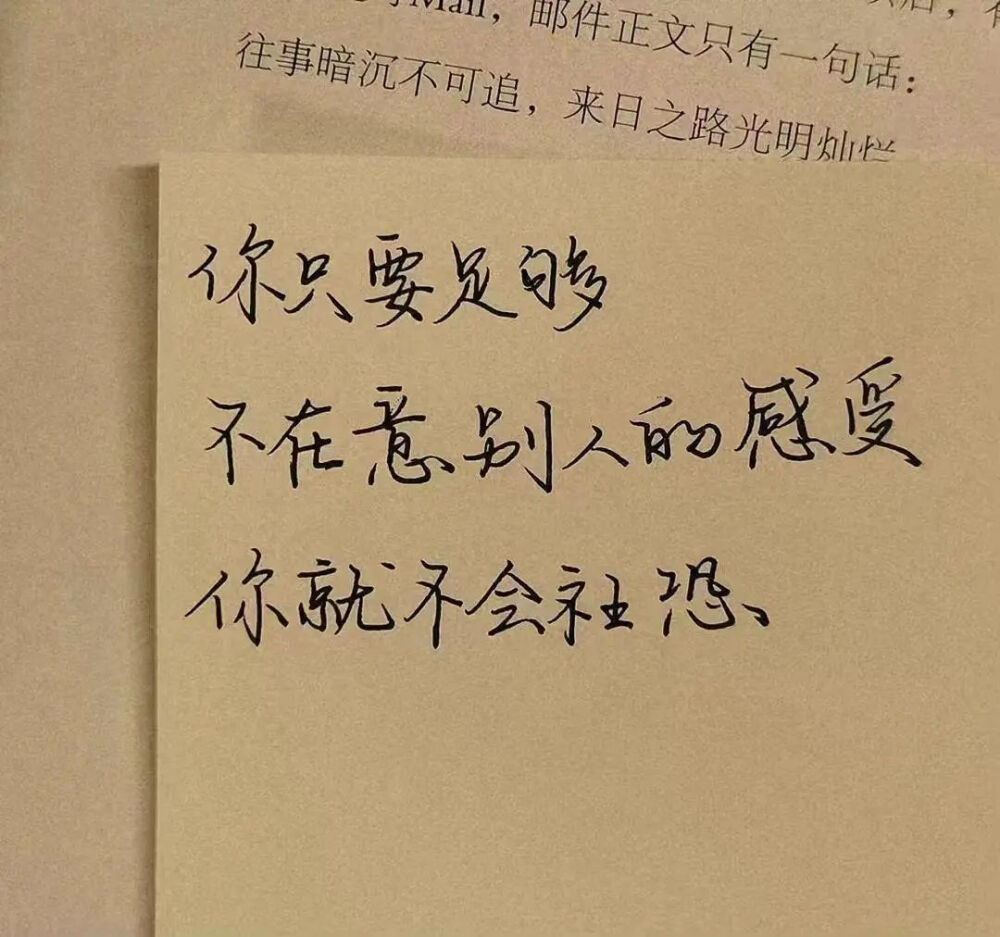 Mail，邮件正文只有一句话：
往事暗沉不可追，来日之路光明灿烂
你只要足够
不在意别人的感受
你就不会社恐、